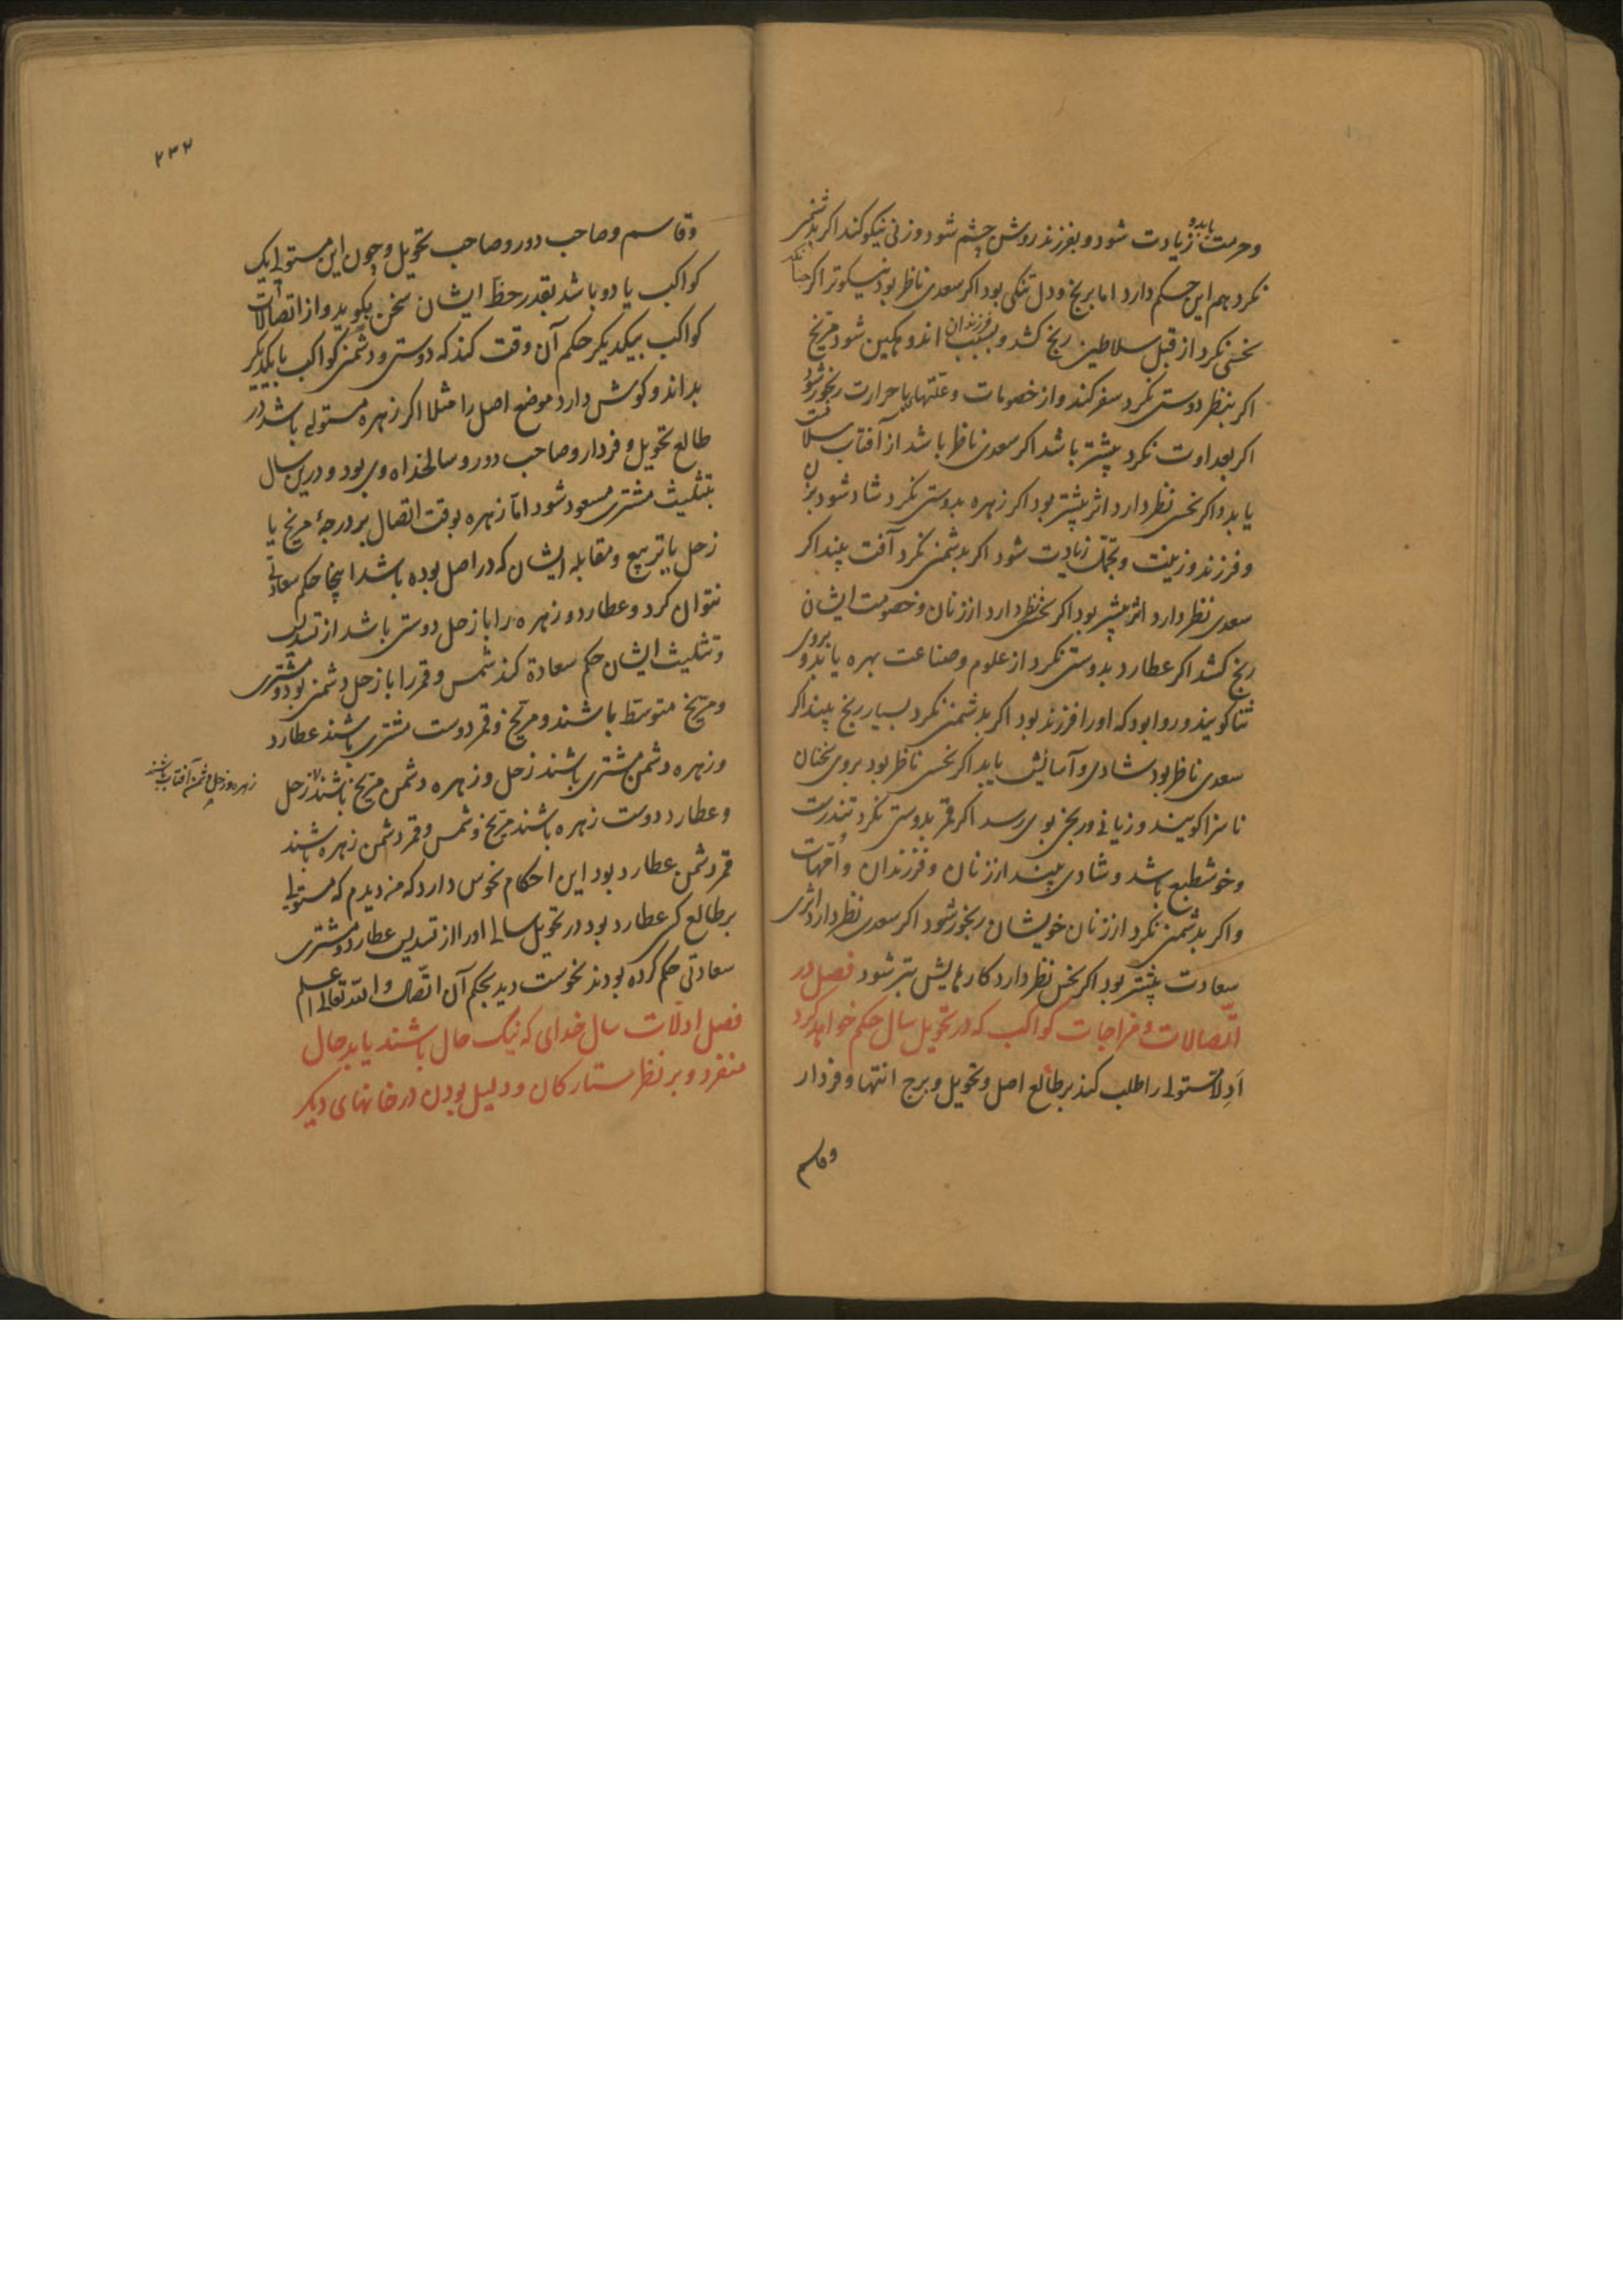 وحرمت یابد و زیادت شود و بفرزند روشن چشم شود و زنی نیکو کند اکر بدشمنی
نکرد هم این حکم دارد اما برنج و دل تنکی بود اکر سعدی ناظر بود نیکوتر اکر
نحسی نکرد از قبل سلاطین رنج کشد و بسبب فرزندان اندوهکین شود مریخ
اکر بنظر دوستی نکرد سفر کند و از خصومات و علتهای با حرارت رنجور شود
اکر بعداوت نکرد بیشتر باشد اکر سعدی ناظر باشد از آفتاب سلامت
یابد و اکر نحس نظر دارد اثر بیشتر بود اکر زهره بدوستی نکرد شاد شود بزن
و فرزند و زینت و تجمل زیادت شود اکر بدشمنی نکرد آفت بیند اکر
سعدی نظر دارد اثر بیشتر بود اکر نحس نظر دارد از زنان و خصومت ایشان
رنج کشد اکر عطارد بدوستی نکرد از علوم و صناعت بهره یابد و بروی
ثنا کویند و روا بود که اورا فرزند بود اکر بدشمنی نکرد بسیار رنج بیند اکر
سعدی ناظر بود شادی و آسایش یابد اکر نحس ناظر بود بروی سخنان
ناسزا کویند و زیانی و رنجی بوی رسد اکر قمر بدوستی نکرد تندرست
و خوش طبع باشد و شادی بیند از زنان و فرزندان و امهات
و اکر بدشمنی نکرد از زنان خویشان رنجور شود اکر سعدی نظر دارد اثری
سعادت بیشتر بود اکر نحس نظر دارد کارهایش بتر شود فصل در
اتصالات و مزاجات کواکب که در تحویل سال حکم خواهد کرد
ادلا مستولی را طلب کند بر طالع اصل و تحویل و برج انتها و فردار
وقاسم
٢٣٢
وقاسم و صاحب دور و صاحب تحویل و چون این مستولی یک
کواکب یا دو باشد بقدر حظ ایشان سخن بکوید و از اتصالات
کواکب بیکدیکر حکم آن وقت کند که دوستی و دشمنی کواکب بایکدیکر
بداند و کوش دارد موضع اصل را مثلا اکر زهره مستولی باشد در
طالع تحویل و فردار و صاحب دور و سالخداه وی بود و درین سال
بتثلیث مشتری مسعود شود اما زهره بوقت اتصال بر درجهٔ مریخ یا
زحل یا تربیع و مقابله ایشان که در اصل بوده باشد اینجا حکم سعادتی
نتوان کرد و عطارد و زهره را با زحل دوستی باشد از تسدیس
و تثلیث ایشان حکم سعادة کند شمس و قمر را با زحل دشمنی بود و مشتری
و مریخ متوسط باشند و مریخ و قمر دوست مشتری باشند عطارد
و زهره دشمن مشتری باشند زحل و زهره دشمن مریخ باشند زحل
زهره و زحل دشمن آفتاب باشند
و عطارد دوست زهره باشند مریخ و شمس و قمر دشمن زهره باشند
قمر دشمن عطارد بود این احکام نحوس دارد که من دیدم که مستولی
بر طالع کسی عطارد بود در تحویل سالی اورا از تسدیس عطارد و مشتری
سعادتی حکم کرده بودند نحوست دید بحکم آن اتصال والله تعالی اعلم
فصل ادلات سال خدای که نیک حال باشند یا بد حال
منفرد و بر نظر ستارکان و دلیل بودن در خانهای دیکر